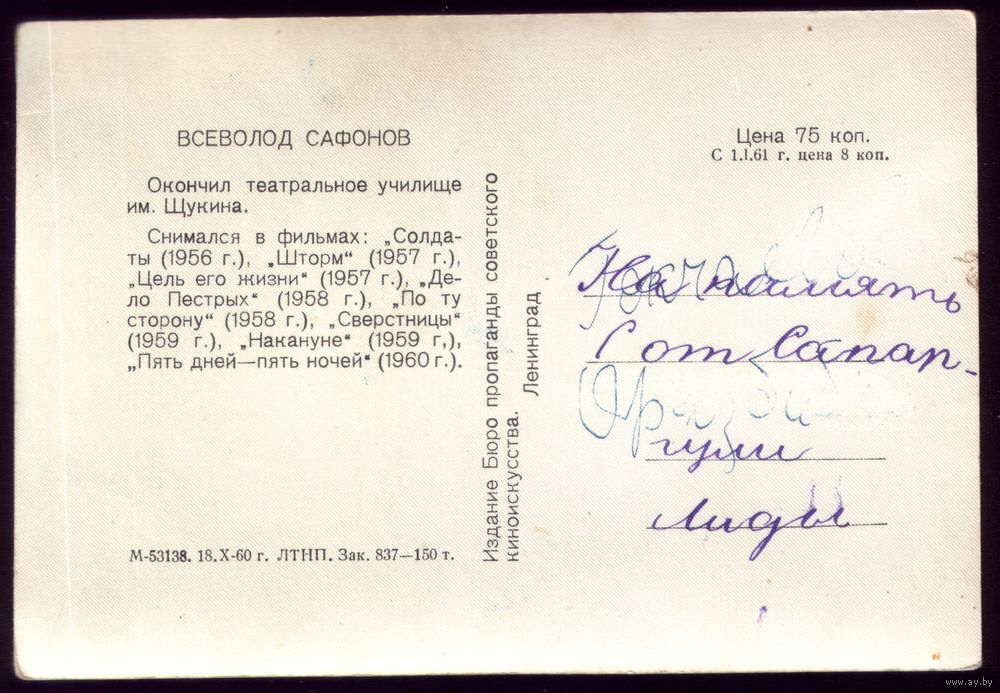 ВСЕВОЛОД САФОНОВ
Окончил театральное училище
им. Щукина.
Снимался в фильмах: „Солда-
ты (1956 г.), „Шторм“ (1957 г.),
„Цель его жизни“ (1957 г.), „Де-
ло Пестрых“ (1958 г.), „По ту
сторону“ (1958 г.), „Сверстницы“
(1959 г.), „Накануне“ (1959 г,),
„Пять дней—пять ночей“ (1960 г.).
М-53138. 18.X-60 г. ЛТНП. Зак. 837—150 т.
Издание Бюро пропаганды советского
киноискусства. Ленинград
Цена 75 коп.
С 1.I.61 г. цена 8 коп.
На память
от Сапар-
гули
Лиды
www.ay.by